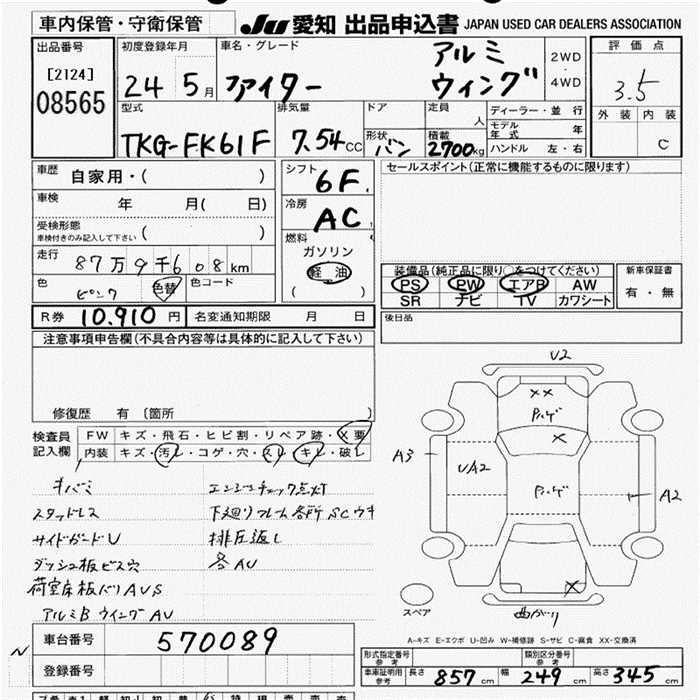 車内保管・守衛保管 JU 愛知 出品申込書 JAPAN USED CAR DEALERS ASSOCIATION
出品番号 [2124] 08565
初度登録年月 24年 5月
車名・グレード ファイター アルミ ウィング
2WD・4WD
評価点 3.5
外装 内装 C
型式 TKG-FK61F
排気量 7.54cc
ドア 形状 バン
定員 人
積載 2700kg
ディーラー・並行
モデル年式 年
ハンドル 左・右
車歴 自家用・( )
車検 年 月( 日)
受検形態 ( )
車検付きのみ記入して下さい
走行 87万9千608km
色 ピンク 色替 色コード
シフト 6F
冷房 AC
燃料 ガソリン 軽油 ( )
セールスポイント(正常に機能するものに限ります)
装備品(純正品に限り○をつけてください)
PS PW エアB AW
SR ナビ TV カワシート
新車保証書 有・無
後日品
R券 10,910円 名変通知期限 月 日
注意事項申告欄(不具合内容等は具体的に記入して下さい)
修復歴 有 〔箇所 〕
検査員記入欄
FW キズ・飛石・ヒビ割・リペア跡・X要
内装 キズ・汚レ・コゲ・穴・スレ・キレ・破レ
キバミ
スタッドレス
サイドガードU
ダッシュ板ビス穴
荷室床板バリAUS
アルミB ウイングAU
エンジンチェック点灯
下廻りフレーム各所SCウキ
排圧返し
各AU
U2
XX
パッゲ
X
A3
UA2
パッゲ
A2
X
スペア
曲がり
A-キズ E-エクボ U-凹み W-補修跡 S-サビ C-腐食 XX-交換済
N
車台番号 570089
登録番号
形式指定番号 参考
類別区分番号 参考
車庫証明用 参考 長さ 857cm 幅 249cm 高さ 345cm